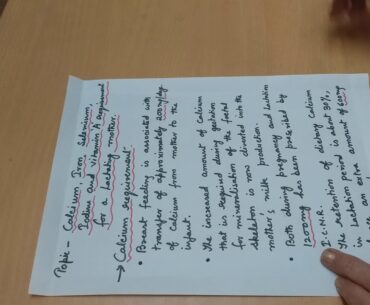 Topic - Calcium, Iron, Selenium,
Iodine and vitamin A requirement
for a lactating mother.
→ Calcium Requirement
• Breast feeding is associated with
transfer of approximately 200mg/day
of Calcium from mother to the
infant.
• The increased amount of Calcium
that is required during gestation
for mineralisation of the foetal
skeleton is now diverted into the
mother's milk production.
• Both during pregnancy and lactation
1200mg has been prescribed by
I.C.M.R.
The retention of dietary Calcium
in Lactation period is about 30%,
an extra amount of 600mg